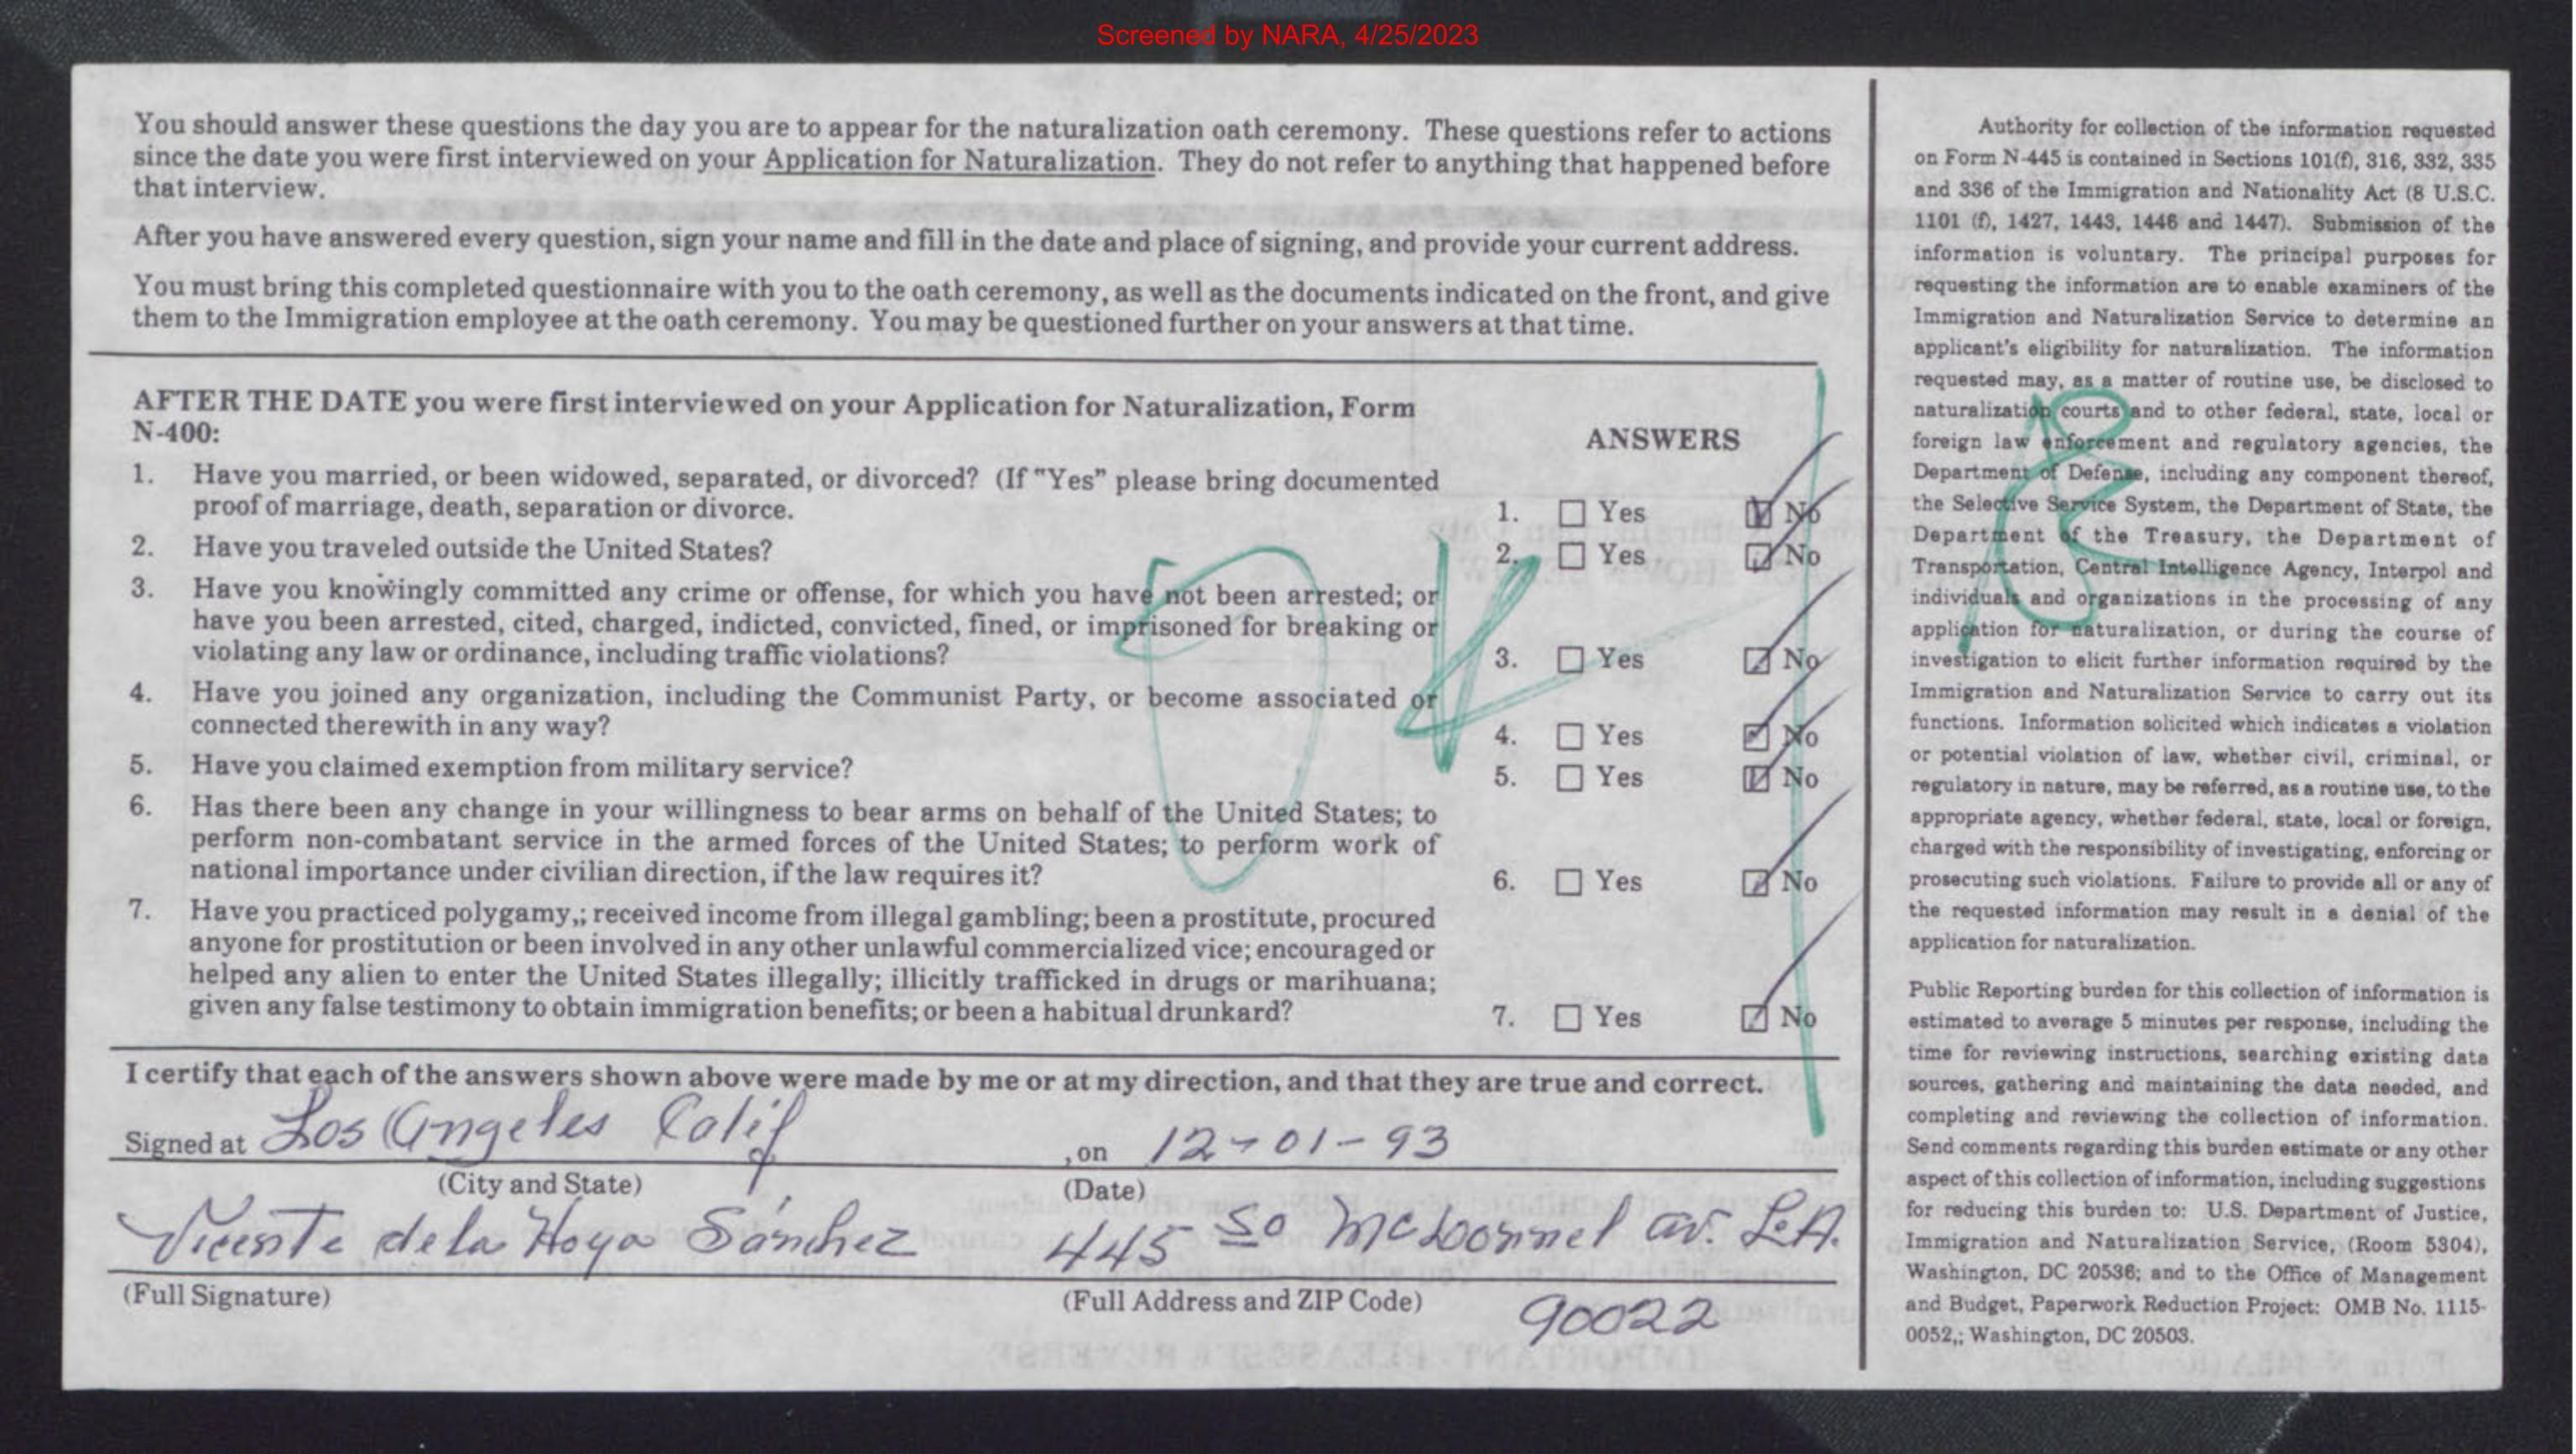 Screened by NARA, 4/25/2023
You should answer these questions the day you are to appear for the naturalization oath ceremony. These questions refer to actions
since the date you were first interviewed on your Application for Naturalization. They do not refer to anything that happened before
that interview.
After you have answered every question, sign your name and fill in the date and place of signing, and provide your current address.
You must bring this completed questionnaire with you to the oath ceremony, as well as the documents indicated on the front, and give
them to the Immigration employee at the oath ceremony. You may be questioned further on your answers at that time.
AFTER THE DATE you were first interviewed on your Application for Naturalization, Form
N-400:
ANSWERS
1. Have you married, or been widowed, separated, or divorced? (If "Yes" please bring documented
proof of marriage, death, separation or divorce.
1. Yes No
2. Have you traveled outside the United States?
2. Yes No
3. Have you knowingly committed any crime or offense, for which you have not been arrested; or
have you been arrested, cited, charged, indicted, convicted, fined, or imprisoned for breaking or
violating any law or ordinance, including traffic violations?
3. Yes No
4. Have you joined any organization, including the Communist Party, or become associated or
connected therewith in any way?
4. Yes No
5. Have you claimed exemption from military service?
5. Yes No
6. Has there been any change in your willingness to bear arms on behalf of the United States; to
perform non-combatant service in the armed forces of the United States; to perform work of
national importance under civilian direction, if the law requires it?
6. Yes No
7. Have you practiced polygamy,; received income from illegal gambling; been a prostitute, procured
anyone for prostitution or been involved in any other unlawful commercialized vice; encouraged or
helped any alien to enter the United States illegally; illicitly trafficked in drugs or marihuana;
given any false testimony to obtain immigration benefits; or been a habitual drunkard?
7. Yes No
I certify that each of the answers shown above were made by me or at my direction, and that they are true and correct.
Signed at Los Angeles Calif , on 12-01-93
(City and State) (Date)
Vicente de la Hoya Sánchez 445 So McDonnel av. L.A.
(Full Signature) (Full Address and ZIP Code) 90022
Authority for collection of the information requested
on Form N-445 is contained in Sections 101(f), 316, 332, 335
and 336 of the Immigration and Nationality Act (8 U.S.C.
1101 (f), 1427, 1443, 1446 and 1447). Submission of the
information is voluntary. The principal purposes for
requesting the information are to enable examiners of the
Immigration and Naturalization Service to determine an
applicant's eligibility for naturalization. The information
requested may, as a matter of routine use, be disclosed to
naturalization courts and to other federal, state, local or
foreign law enforcement and regulatory agencies, the
Department of Defense, including any component thereof,
the Selective Service System, the Department of State, the
Department of the Treasury, the Department of
Transportation, Central Intelligence Agency, Interpol and
individuals and organizations in the processing of any
application for naturalization, or during the course of
investigation to elicit further information required by the
Immigration and Naturalization Service to carry out its
functions. Information solicited which indicates a violation
or potential violation of law, whether civil, criminal, or
regulatory in nature, may be referred, as a routine use, to the
appropriate agency, whether federal, state, local or foreign,
charged with the responsibility of investigating, enforcing or
prosecuting such violations. Failure to provide all or any of
the requested information may result in a denial of the
application for naturalization.
Public Reporting burden for this collection of information is
estimated to average 5 minutes per response, including the
time for reviewing instructions, searching existing data
sources, gathering and maintaining the data needed, and
completing and reviewing the collection of information.
Send comments regarding this burden estimate or any other
aspect of this collection of information, including suggestions
for reducing this burden to: U.S. Department of Justice,
Immigration and Naturalization Service, (Room 5304),
Washington, DC 20536; and to the Office of Management
and Budget, Paperwork Reduction Project: OMB No. 1115-
0052,; Washington, DC 20503.